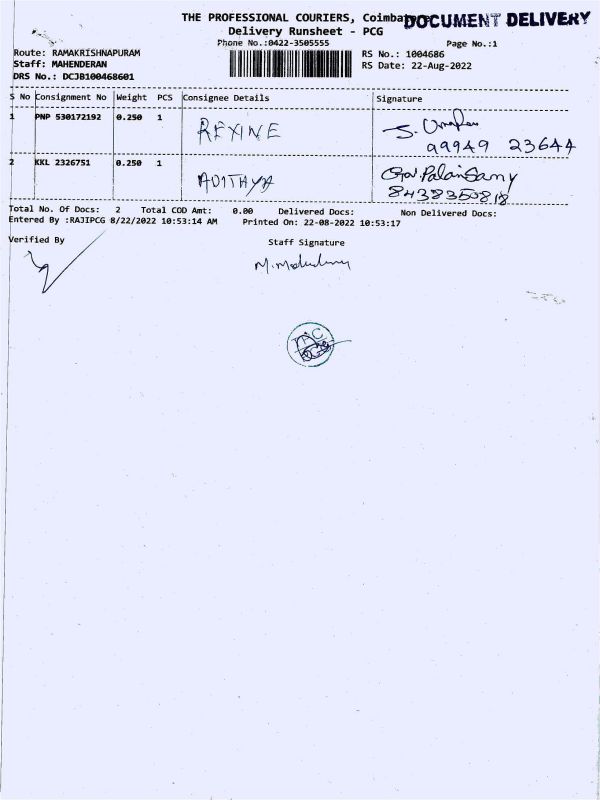 THE PROFESSIONAL COURIERS, Coimbatore
DOCUMENT DELIVERY
Delivery Runsheet - PCG
Phone No.:0422-3505555
Page No.:1
Route: RAMAKRISHNAPURAM
RS No.: 1004686
Staff: MAHENDERAN
RS Date: 22-Aug-2022
DRS No.: DCJB100468601
S No Consignment No Weight PCS Consignee Details Signature
1 PNP 530172192 0.250 1 REXINE
99949 23644
2 KKL 2326751 0.250 1 ADITHYA
8438350818
Total No. Of Docs: 2 Total COD Amt: 0.00 Delivered Docs: Non Delivered Docs:
Entered By :RAJIPCG 8/22/2022 10:53:14 AM Printed On: 22-08-2022 10:53:17
Verified By Staff Signature